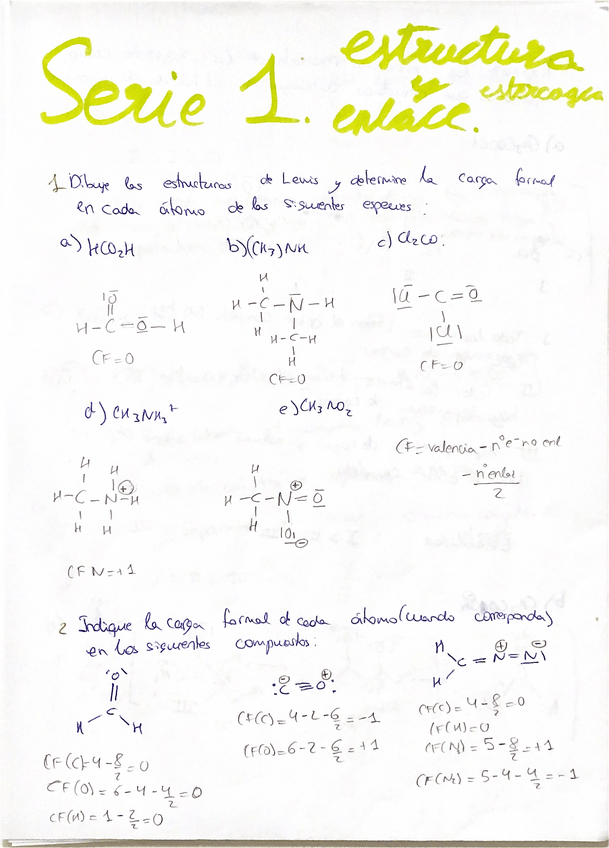 Serie 1. estructura
y
enlace.
1 Dibuje las estructuras de Lewis y determine la carga formal
en cada átomo de las siguientes especies:
a) HCO₂H b) (CH₃)NH c) Cl₂CO:
|O
H-C-O-H
CF=0
H
H-C-N-H
H H-C-H
H
CF=0
|Cl-C=O
|Cl|
CF=0
d) CH₃NH₃⁺ e) CH₃NO₂
CF= valencia - nºe⁻ no enl
- nºenlac
2
H H
H-C-N-H
⊕
H H
CF N=+1
H
H-C-N=O
⊕
H |O|
⊖
2 Indique la carga formal de cada átomo (cuando corresponda)
en los siguientes compuestos:
O
C
H H
CF(C)=4-8/2=0
CF(O)=6-4-4/2=0
CF(H)=1-2/2=0
⊖ ⊕
:C≡O:
CF(C)=4-2-6/2=-1
CF(O)=6-2-6/2=+1
H ⊕ ⊖
C=N=N|
H
CF(C)=4-8/2=0
CF(H)=0
CF(N)=5-8/2=+1
CF(N₂)=5-4-4/2=-1